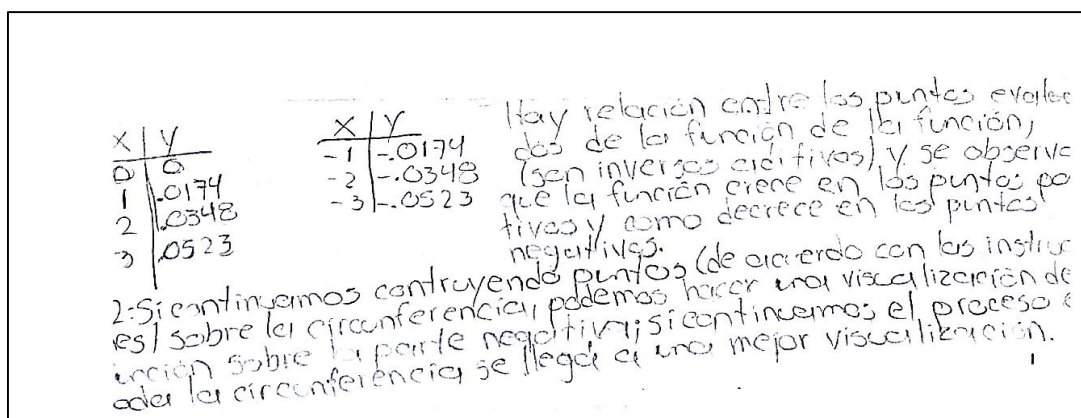 X | Y
0 | 0
1 | .0174
2 | .0348
3 | .0523
X | Y
-1 | -.0174
-2 | -.0348
-3 | -.0523
Hay relación entre los puntos evalua
dos de la función de la función,
(son inversos aditivos), y se observa
que la función crece en los puntos po
tivos y como decrece en los puntos
negativos.
2: Si continuamos contruyendo puntos (de acuerdo con las instruc
es) sobre la circunferencia, podemos hacer una visualización de
unción sobre la parte negativa; si continuamos el proceso
oda la circunferencia se llega a una mejor visualización.